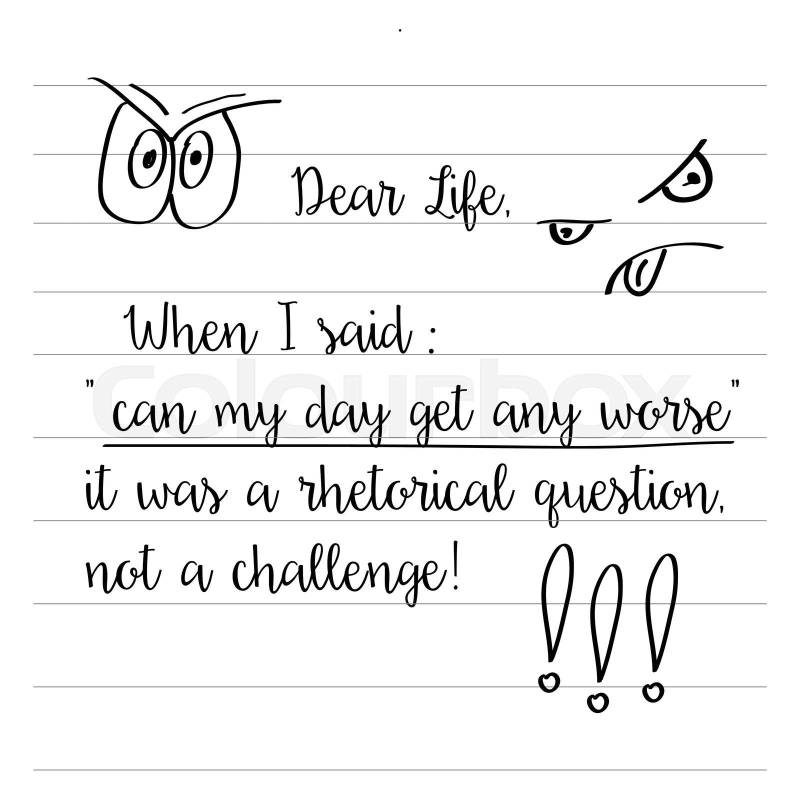 Dear Life,
When I said :
"can my day get any worse"
it was a rhetorical question,
not a challenge!
!!!
colourbox